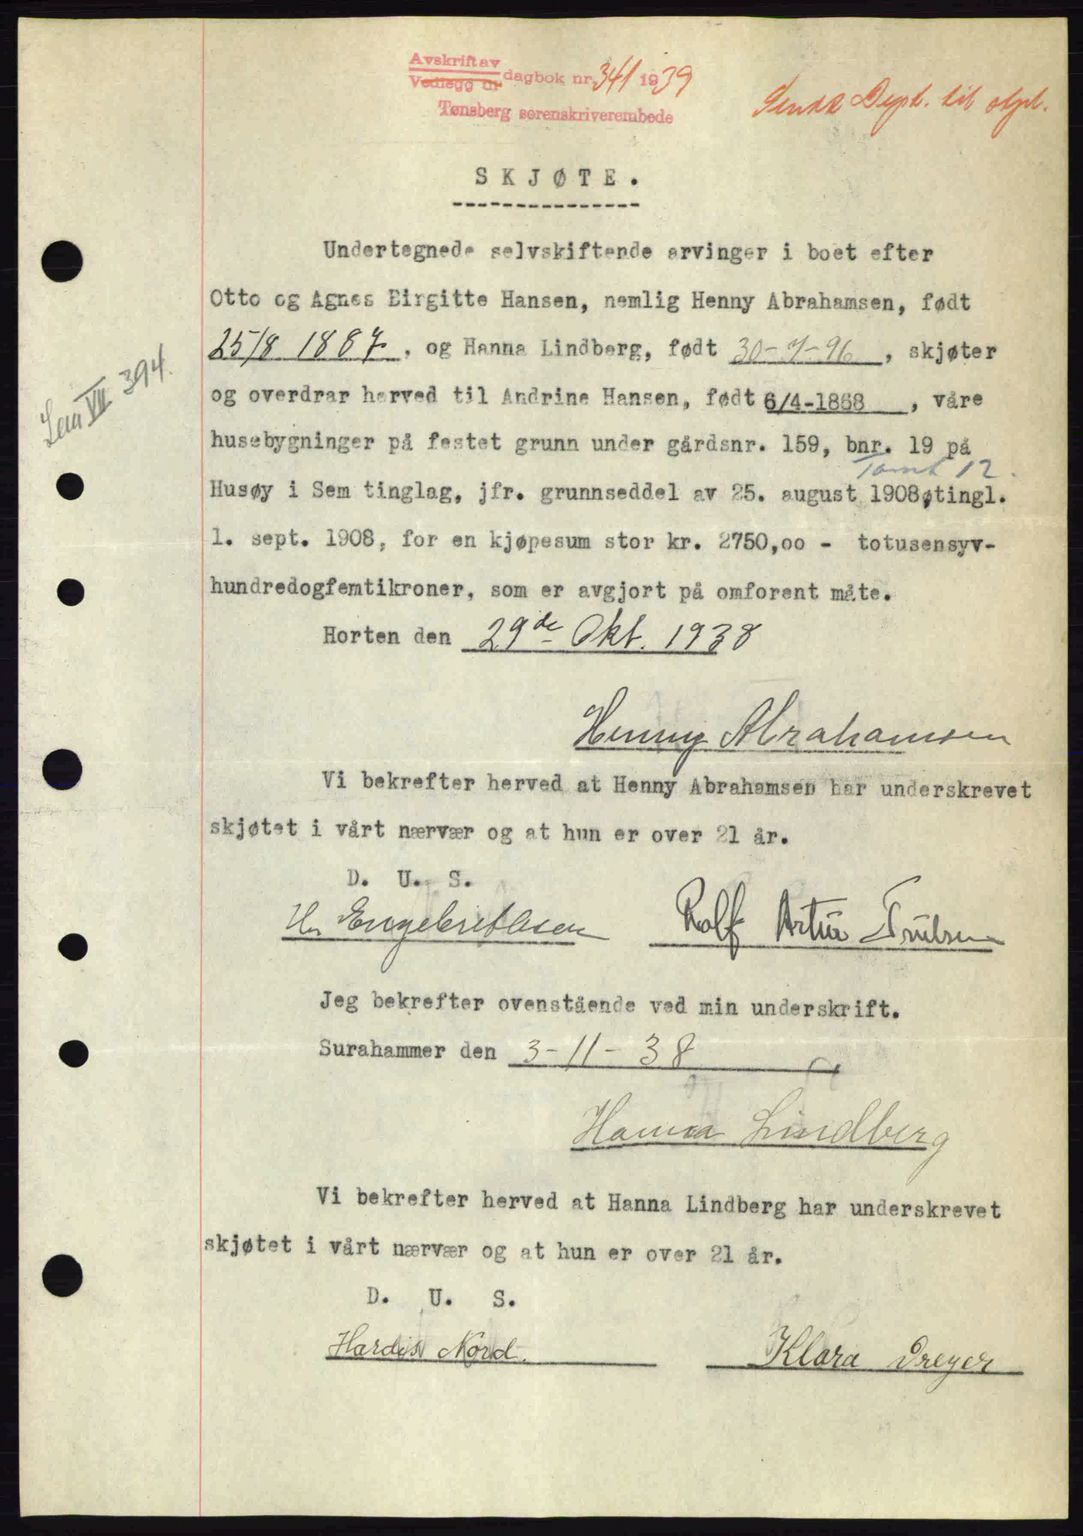 Avskrift av
Vedlegg til
dagbok nr. 341 1939
Tønsberg sorenskriverembede
Dept. til
SKJØTE.
Undertegnede selvskiftende arvinger i boet efter
Otto og Agnes Birgitte Hansen, nemlig Henny Abrahamsen, født
25/8 1887, og Hanna Lindberg, født 30-7-96, skjøter
og overdrar herved til Andrine Hansen, født 6/4-1868, våre
Sem VII 394.
husebygninger på festet grunn under gårdsnr. 159, bnr. 19 på
Tomt 12.
Husøy i Sem tinglag, jfr. grunnseddel av 25. august 1908, tingl.
1. sept. 1908, for en kjøpesum stor kr. 2750,00 - totusensyv-
hundredogfemtikroner, som er avgjort på omforent måte.
Horten den 29de Okt. 1938
Henny Abrahamsen
Vi bekrefter herved at Henny Abrahamsen har underskrevet
skjøtet i vårt nærvær og at hun er over 21 år.
D. U. S.
Engebrethsen Rolf Artur
Jeg bekrefter ovenstående ved min underskrift.
Surahammer den 3-11-38
Hanna Lindberg
Vi bekrefter herved at Hanna Lindberg har underskrevet
skjøtet i vårt nærvær og at hun er over 21 år.
D. U. S.
Hardis Nord. Klara Dreyer